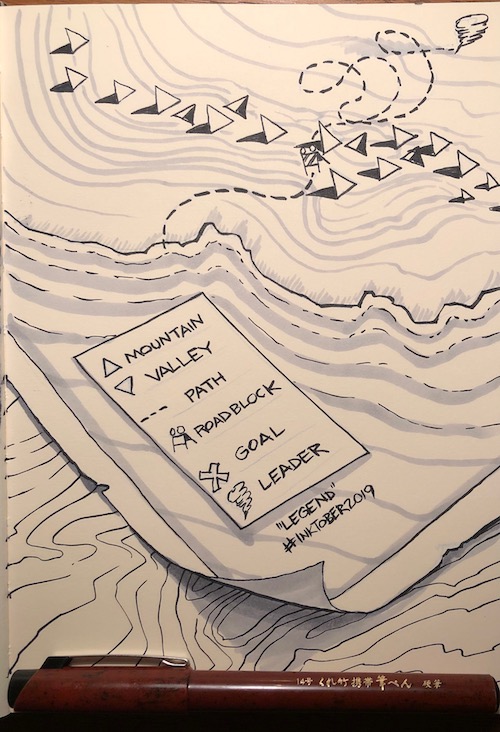 MOUNTAIN
VALLEY
PATH
ROADBLOCK
GOAL
LEADER
"LEGEND"
#INKTOBER2019
14号 くれ竹携帯筆ぺん 硬筆